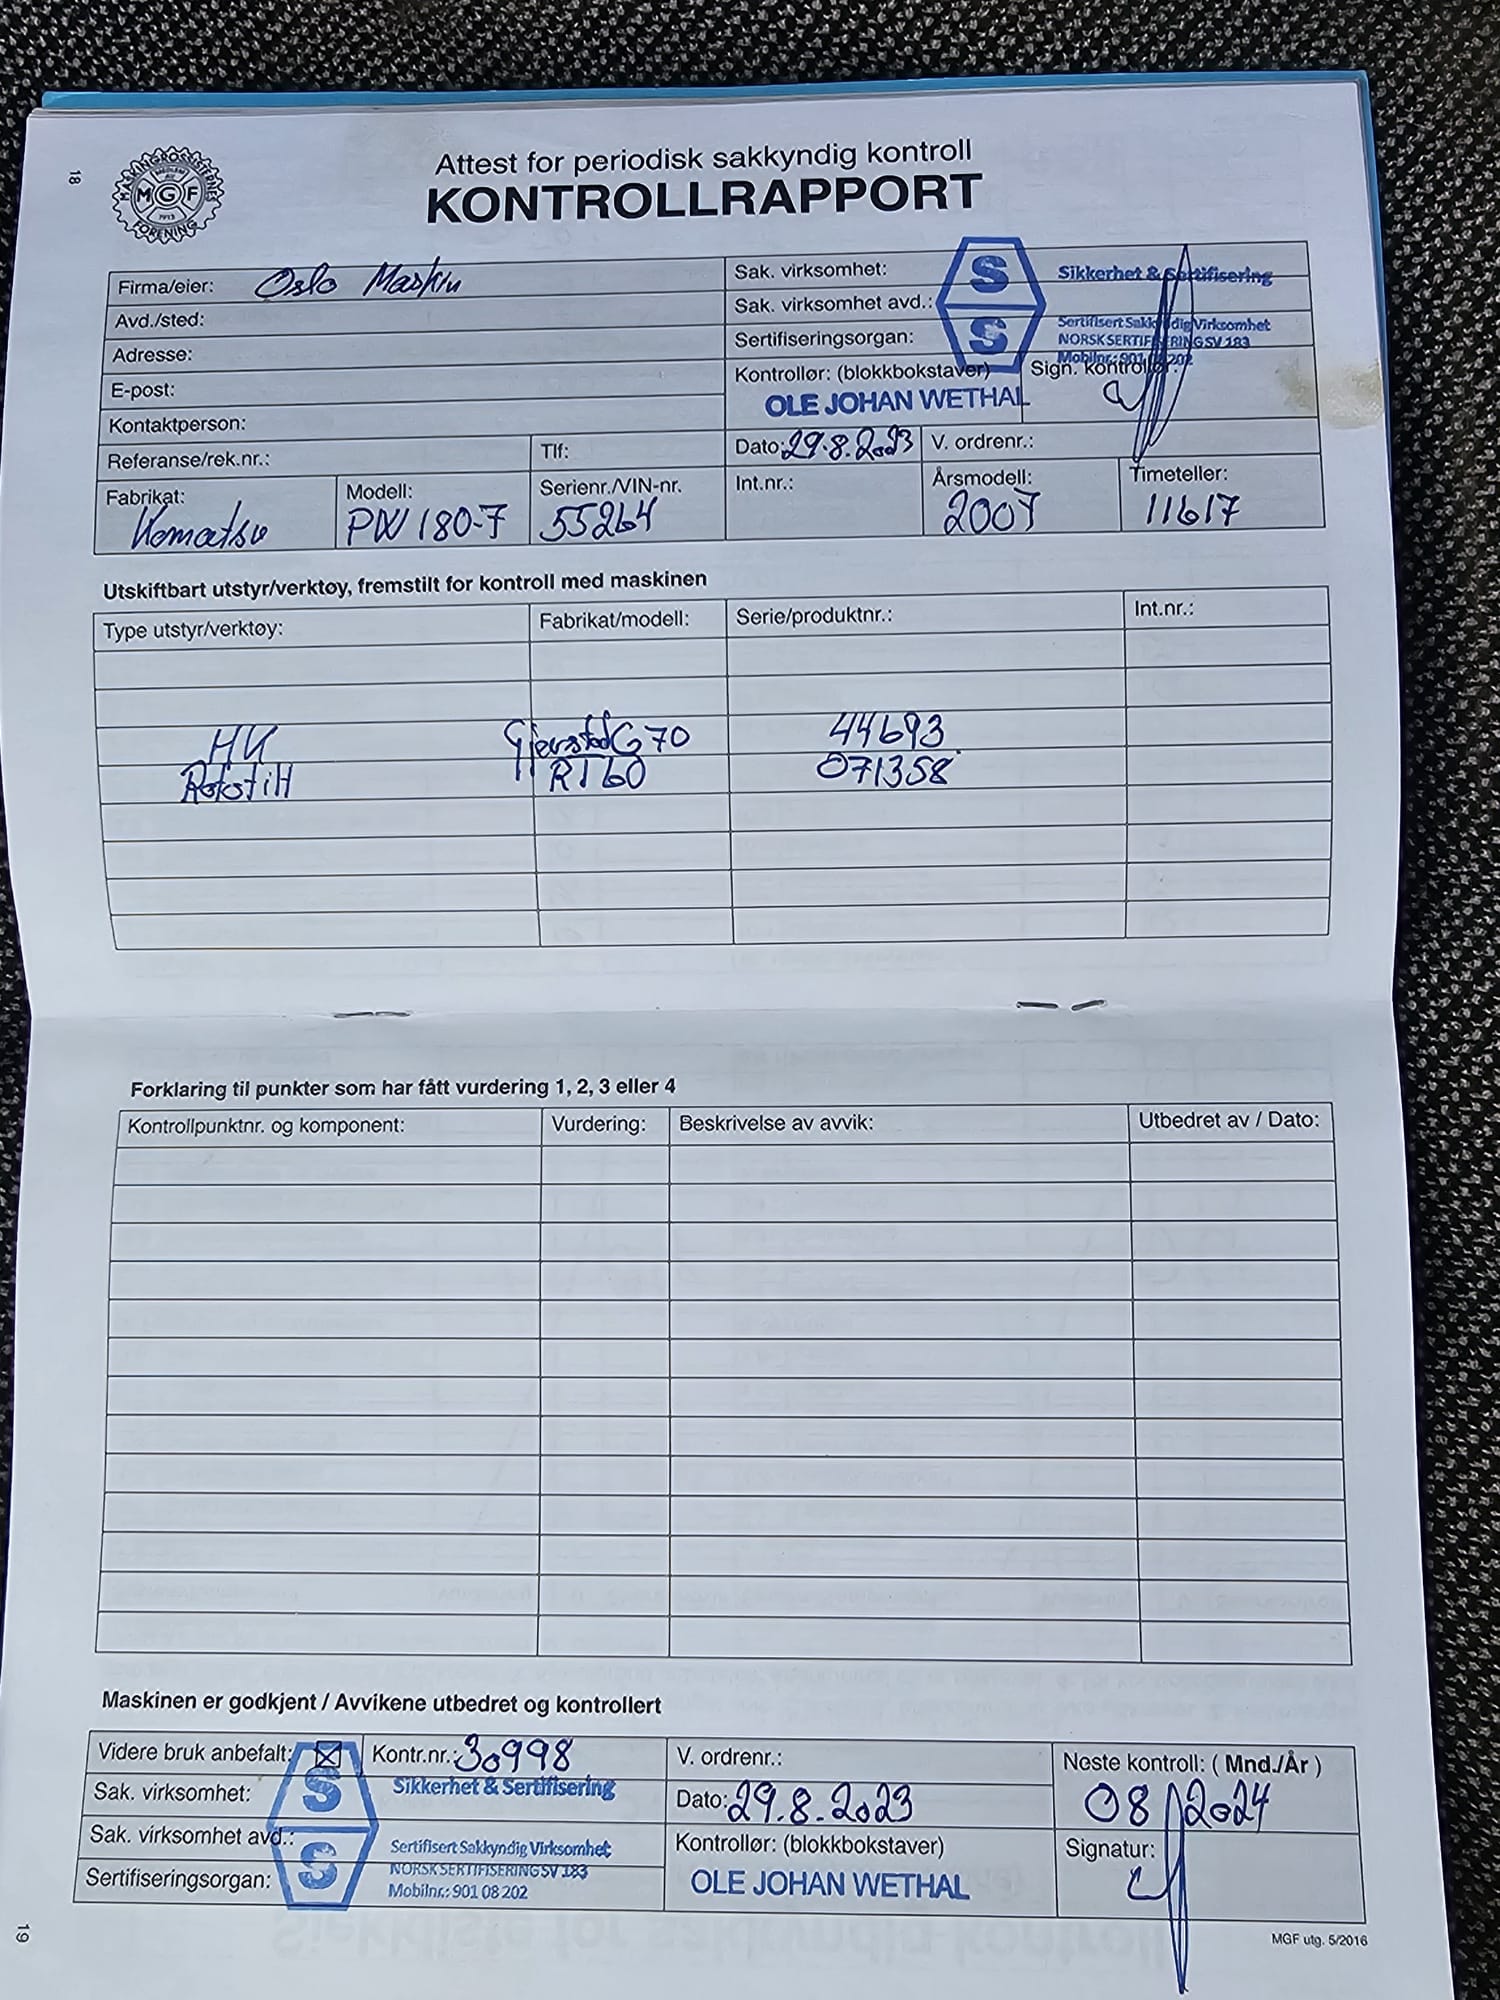 18
MASKINGROSSISTERNES FORENING
MEDLEM AV
MGF
1913
Attest for periodisk sakkyndig kontroll
KONTROLLRAPPORT
Firma/eier: Oslo Maskin
Avd./sted:
Adresse:
E-post:
Kontaktperson:
Referanse/rek.nr.: Tlf:
Sak. virksomhet: Sikkerhet & Sertifisering
Sak. virksomhet avd.: Sertifisert Sakkyndig Virksomhet
Sertifiseringsorgan: NORSK SERTIFISERING SV 183
Mobilnr.: 901 08 202
S
S
Kontrollør: (blokkbokstaver) Sign. kontrollør:
OLE JOHAN WETHAL
Dato: 29.8.2023 V. ordrenr.:
Fabrikat: Modell: Serienr./VIN-nr. Int.nr.: Årsmodell: Timeteller:
Komatsu PW 180-7 55264 2007 11617
Utskiftbart utstyr/verktøy, fremstilt for kontroll med maskinen
Type utstyr/verktøy: Fabrikat/modell: Serie/produktnr.: Int.nr.:
HK Gjerstad G70 44693
Rototilt RT60 071358
Forklaring til punkter som har fått vurdering 1, 2, 3 eller 4
Kontrollpunktnr. og komponent: Vurdering: Beskrivelse av avvik: Utbedret av / Dato:
Maskinen er godkjent / Avvikene utbedret og kontrollert
Videre bruk anbefalt: Kontr.nr.: 30998 V. ordrenr.: Neste kontroll: ( Mnd./År )
08/2024
Sak. virksomhet: S Sikkerhet & Sertifisering Dato: 29.8.2023
Sak. virksomhet avd.: Sertifisert Sakkyndig Virksomhet Kontrollør: (blokkbokstaver) Signatur:
Sertifiseringsorgan: S NORSK SERTIFISERING SV 183 OLE JOHAN WETHAL
Mobilnr.: 901 08 202
19
MGF utg. 5/2016